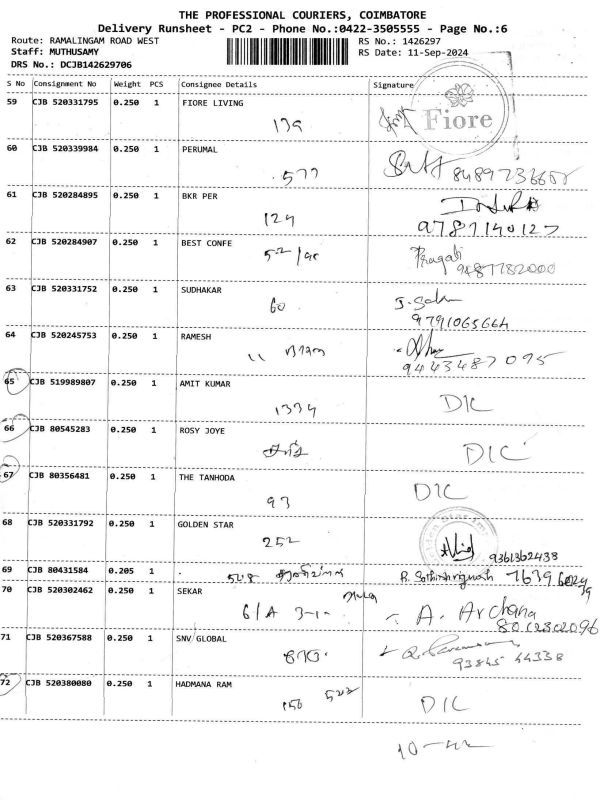 THE PROFESSIONAL COURIERS, COIMBATORE
Delivery Runsheet - PC2 - Phone No.:0422-3505555 - Page No.:6
Route: RAMALINGAM ROAD WEST RS No.: 1426297
Staff: MUTHUSAMY RS Date: 11-Sep-2024
DRS No.: DCJB142629706
S No Consignment No Weight PCS Consignee Details Signature
59 CJB 520331795 0.250 1 FIORE LIVING
139 Fiore
60 CJB 520339984 0.250 1 PERUMAL
577
61 CJB 520284895 0.250 1 BKR PER
124 9787140127
62 CJB 520284907 0.250 1 BEST CONFE
Pragati
9487782000
63 CJB 520331752 0.250 1 SUDHAKAR
60
9791065664
64 CJB 520245753 0.250 1 RAMESH
11
9443487095
65 CJB 519989807 0.250 1 AMIT KUMAR
1334 DIC
66 CJB 80545283 0.250 1 ROSY JOYE
DIC
67 CJB 80356481 0.250 1 THE TANHODA
93 DIC
68 CJB 520331792 0.250 1 GOLDEN STAR
252 9361362438
69 CJB 80431584 0.205 1 .
70 CJB 520302462 0.250 1 SEKAR
6/A 3-1- A. Archana
71 CJB 520367588 0.250 1 SNV GLOBAL
93845 44338
72 CJB 520380080 0.250 1 HADMANA RAM
150 DIC